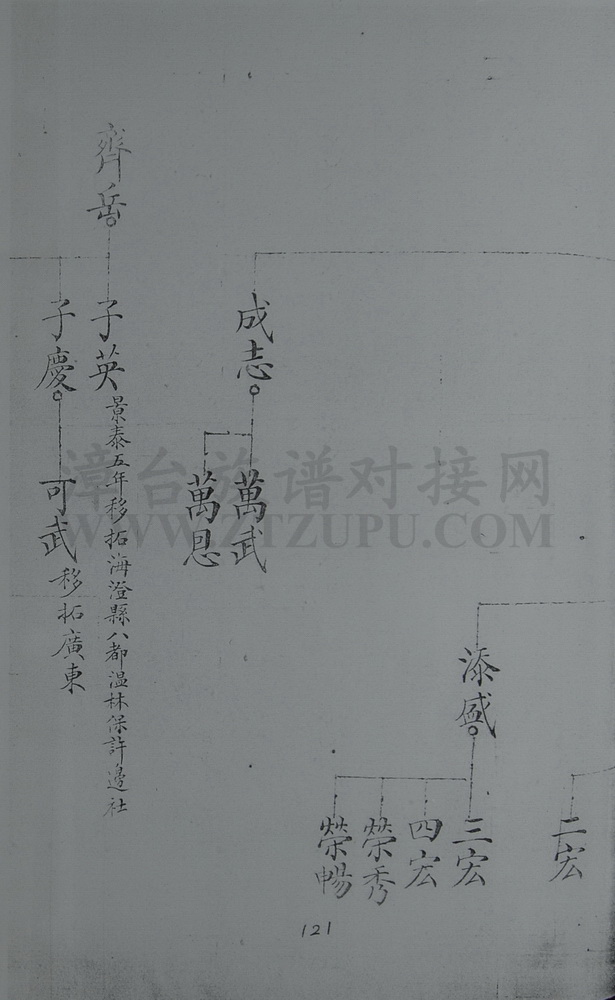 二宏
添盛
三宏
四宏
榮秀
榮暢
成志
萬武
萬恩
齊岳
子英
景泰五年移拓海澄縣八都温林保許邊社
子慶
可武
移拓廣東
漳台族谱对接网
WWW.ZTZUPU.COM
121